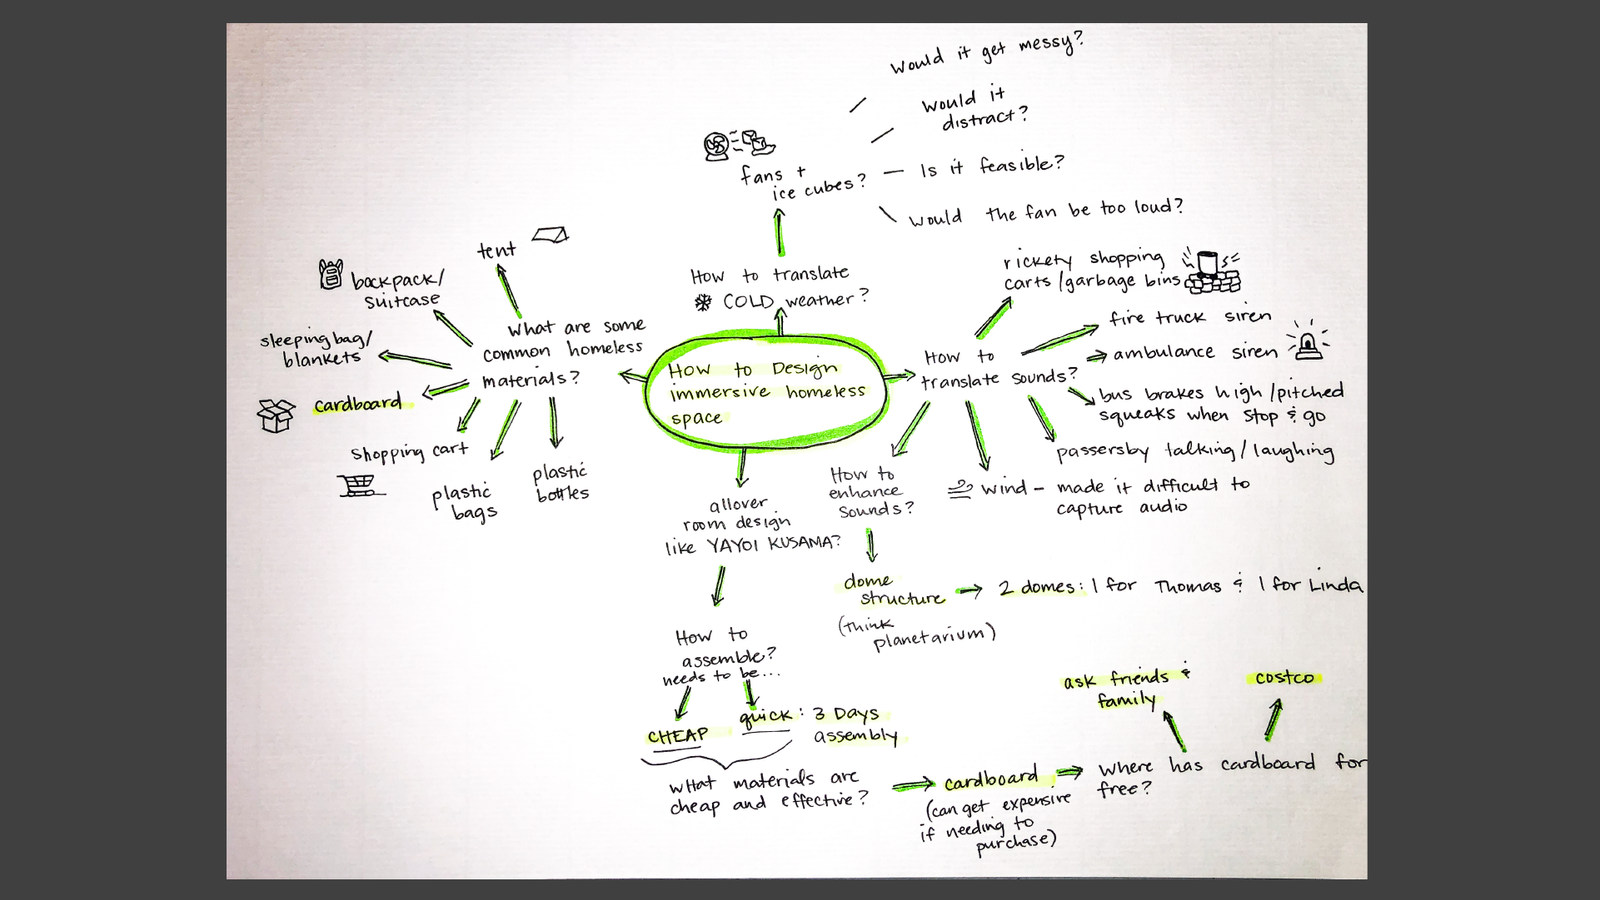 would it get messy?
would it
distract?
fans +
ice cubes?
Is it feasible?
would the fan be too loud?
How to translate
COLD weather?
How to Design
immersive homeless
space
what are some
common homeless
materials?
tent
backpack/
suitcase
sleeping bag/
blankets
cardboard
shopping cart
plastic
bags
plastic
bottles
How to
translate sounds?
rickety shopping
carts/garbage bins
fire truck siren
ambulance siren
bus brakes high/pitched
squeaks when stop & go
passersby talking/laughing
wind - made it difficult to
capture audio
How to
enhance
sounds?
dome
structure
(think
planetarium)
2 domes: 1 for Thomas & 1 for Linda
allover
room design
like YAYOI KUSAMA?
How to
assemble?
needs to be...
CHEAP
quick: 3 Days
assembly
what materials are
cheap and effective?
cardboard
(can get expensive
if needing to
purchase)
where has cardboard for
free?
ask friends &
family
costco